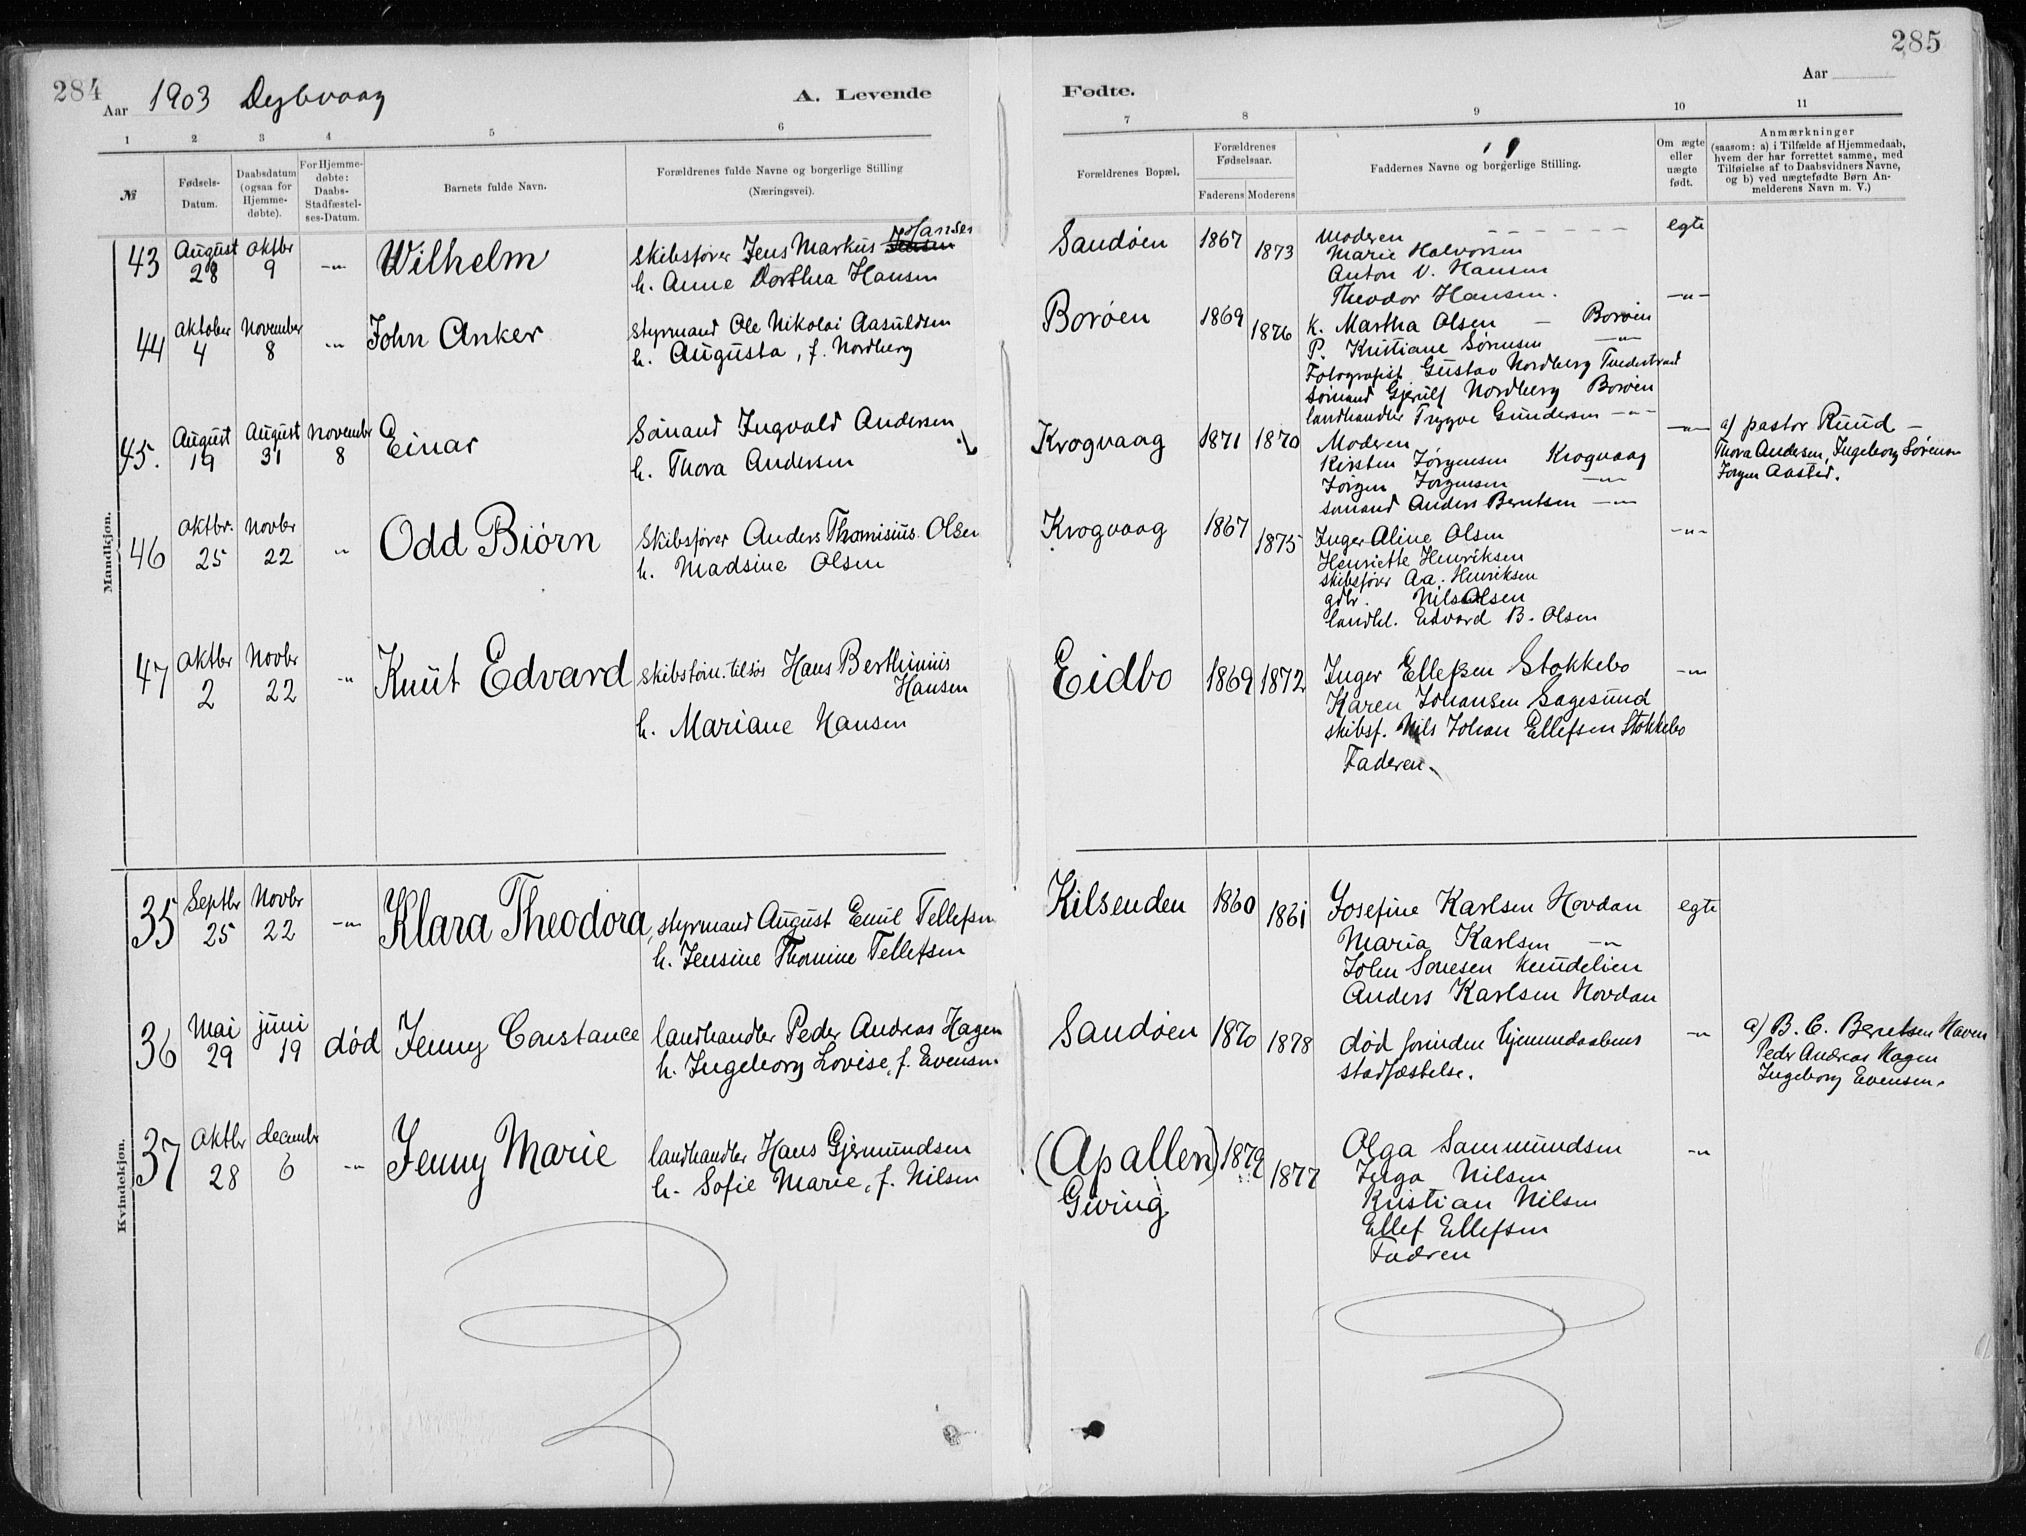 284
285
Aar 1903 Dybvaag
A. Levende
Fødte.
Aar
1 2 3 4 5 6 7 8 9 10 11
№
Fødsels-
Datum.
Daabsdatum
(ogsaa for
Hjemme-
døbte).
For Hjemme-
døbte:
Daabs-
Stadfæstel-
ses-Datum.
Barnets fulde Navn.
Forældrenes fulde Navne og borgerlige Stilling
(Næringsvei).
Forældrenes Bopæl.
Forældrenes
Fødselsaar.
Faderens Moderens
Faddernes Navne og borgerlige Stilling.
Om ægte
eller
uægte
født.
Anmærkninger
(saasom: a) i Tilfælde af Hjemmedaab,
hvem der har forrettet samme, med
Tilføielse af to Daabsvidners Navne,
og b) ved uægtefødte Børn An-
melderens Navn m. V.)
Mandkjøn.
43
August
28
oktbr
9
-"-
Wilhelm
Skibsfører Jens Markus Jensen Hansen
h. Anne Dorthea Hansen
Sandøen
1867
1873
Moderen
Marie Halvorsen
Anton V. Hansen
Theodor Hansen.
egte
44
oktober
4
November
8
-"-
John Anker
styrmand Ole Nikolai Aasuldsen
h. Augusta, f. Nordberg
Borøen
1869
1876
K. Martha Olsen - Borøen
P. Kristiane Sørensen -"-
Fotografist Gustav Nordberg Tvedestrand
Sømand Gjerulf Nordberg Borøen
landhandler Trygve Gundersen -"-
-"-
45.
August
19
August
31
Novembr
8
Einar
Sømand Ingvald Andersen
h. Thora Andersen
Krogvaag
1871
1870
Moderen
Kirsten Jørgensen Krogvaag
Jørgen Jørgensen -"-
sømand Anders Berntsen -"-
-"-
a) pastor Ruud -
Thora Andersen, Ingeborg Sørensen
Jørgen Aasted.
46
oktbr.
25
Novbr
22
"
Odd Biørn
Skibsfører Anders Thomisius Olsen
h. Madsine Olsen
Krogvaag
1867
1875
Inger Aline Olsen
Henriette Henriksen
skibsfører Aa. Henriksen
gdbr. Nils Olsen
landhl. Edvard B. Olsen
-"-
47
oktbr
2
Novbr
22
-"
Knut Edvard
skibstøm. tilsøs Hans Berthinius
Hansen
h. Mariane Hansen
Eidbo
1869
1872
Inger Ellefsen Stokkebo
Karen Johansen Sagesund
skibsf. Nils Johan Ellefsen Stokkebo
Faderen.
-"-
Kvindekjøn.
35
Septbr
25
Novbr
22
-"-
Klara Theodora
styrmand August Emil Tellefsen
h. Jensine Thomine Tellefsen
Kilsenden
1860
1861
Josefine Karlsen Hovdan
Maria Karlsen -"-
John Sonesen
Anders Karlsen Hovdan
egte
36
Mai
29
juni
19
død
Jenny Constance
landhandler Peder Andreas Hagen
h. Ingeborg Lovise, f. Evensen.
Sandøen
1870
1878
død forinden hjemmedaabens
stadfæstelse.
-"
a) B. C. Berntsen Haven
Peder Andreas Hagen
Ingeborg Evensen.
37
oktbr
28
decembr
6
-"-
Jenny Marie
landhandler Hans Gjermundsen
h. Sofie Marie, f. Nilsen
(Apallen)
Giving
1879
1877
Olga Sammundsen
Inga Nilsen
Kristian Nilsen
Ellef Ellefsen
Fadren
-"-